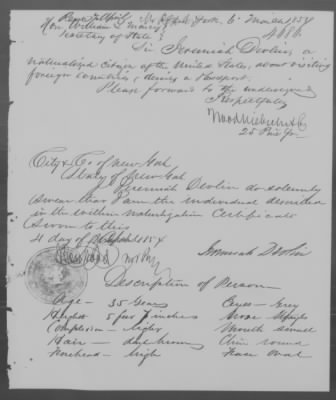 Hon. William L. Marcy
Secretary of State
Sir Jeremiah Devlin, a
naturalized citizen of the United States, about visiting
foreign countries, desires a Passport.
Please forward to the undersigned
Respectfully
25 Pine St
City & Co of New York
State of New York
I Jeremiah Devlin do solemnly
swear that I am the individual described
in the within Naturalization Certificate
Sworn to this
21 day of 1854
Jeremiah Devlin
Description of Person
Age – 35 Years Eyes – Grey
Height 5 feet 7 inches Nose
Complexion – Mouth small
Hair – dark brown Chin round
Forehead – high Face oval